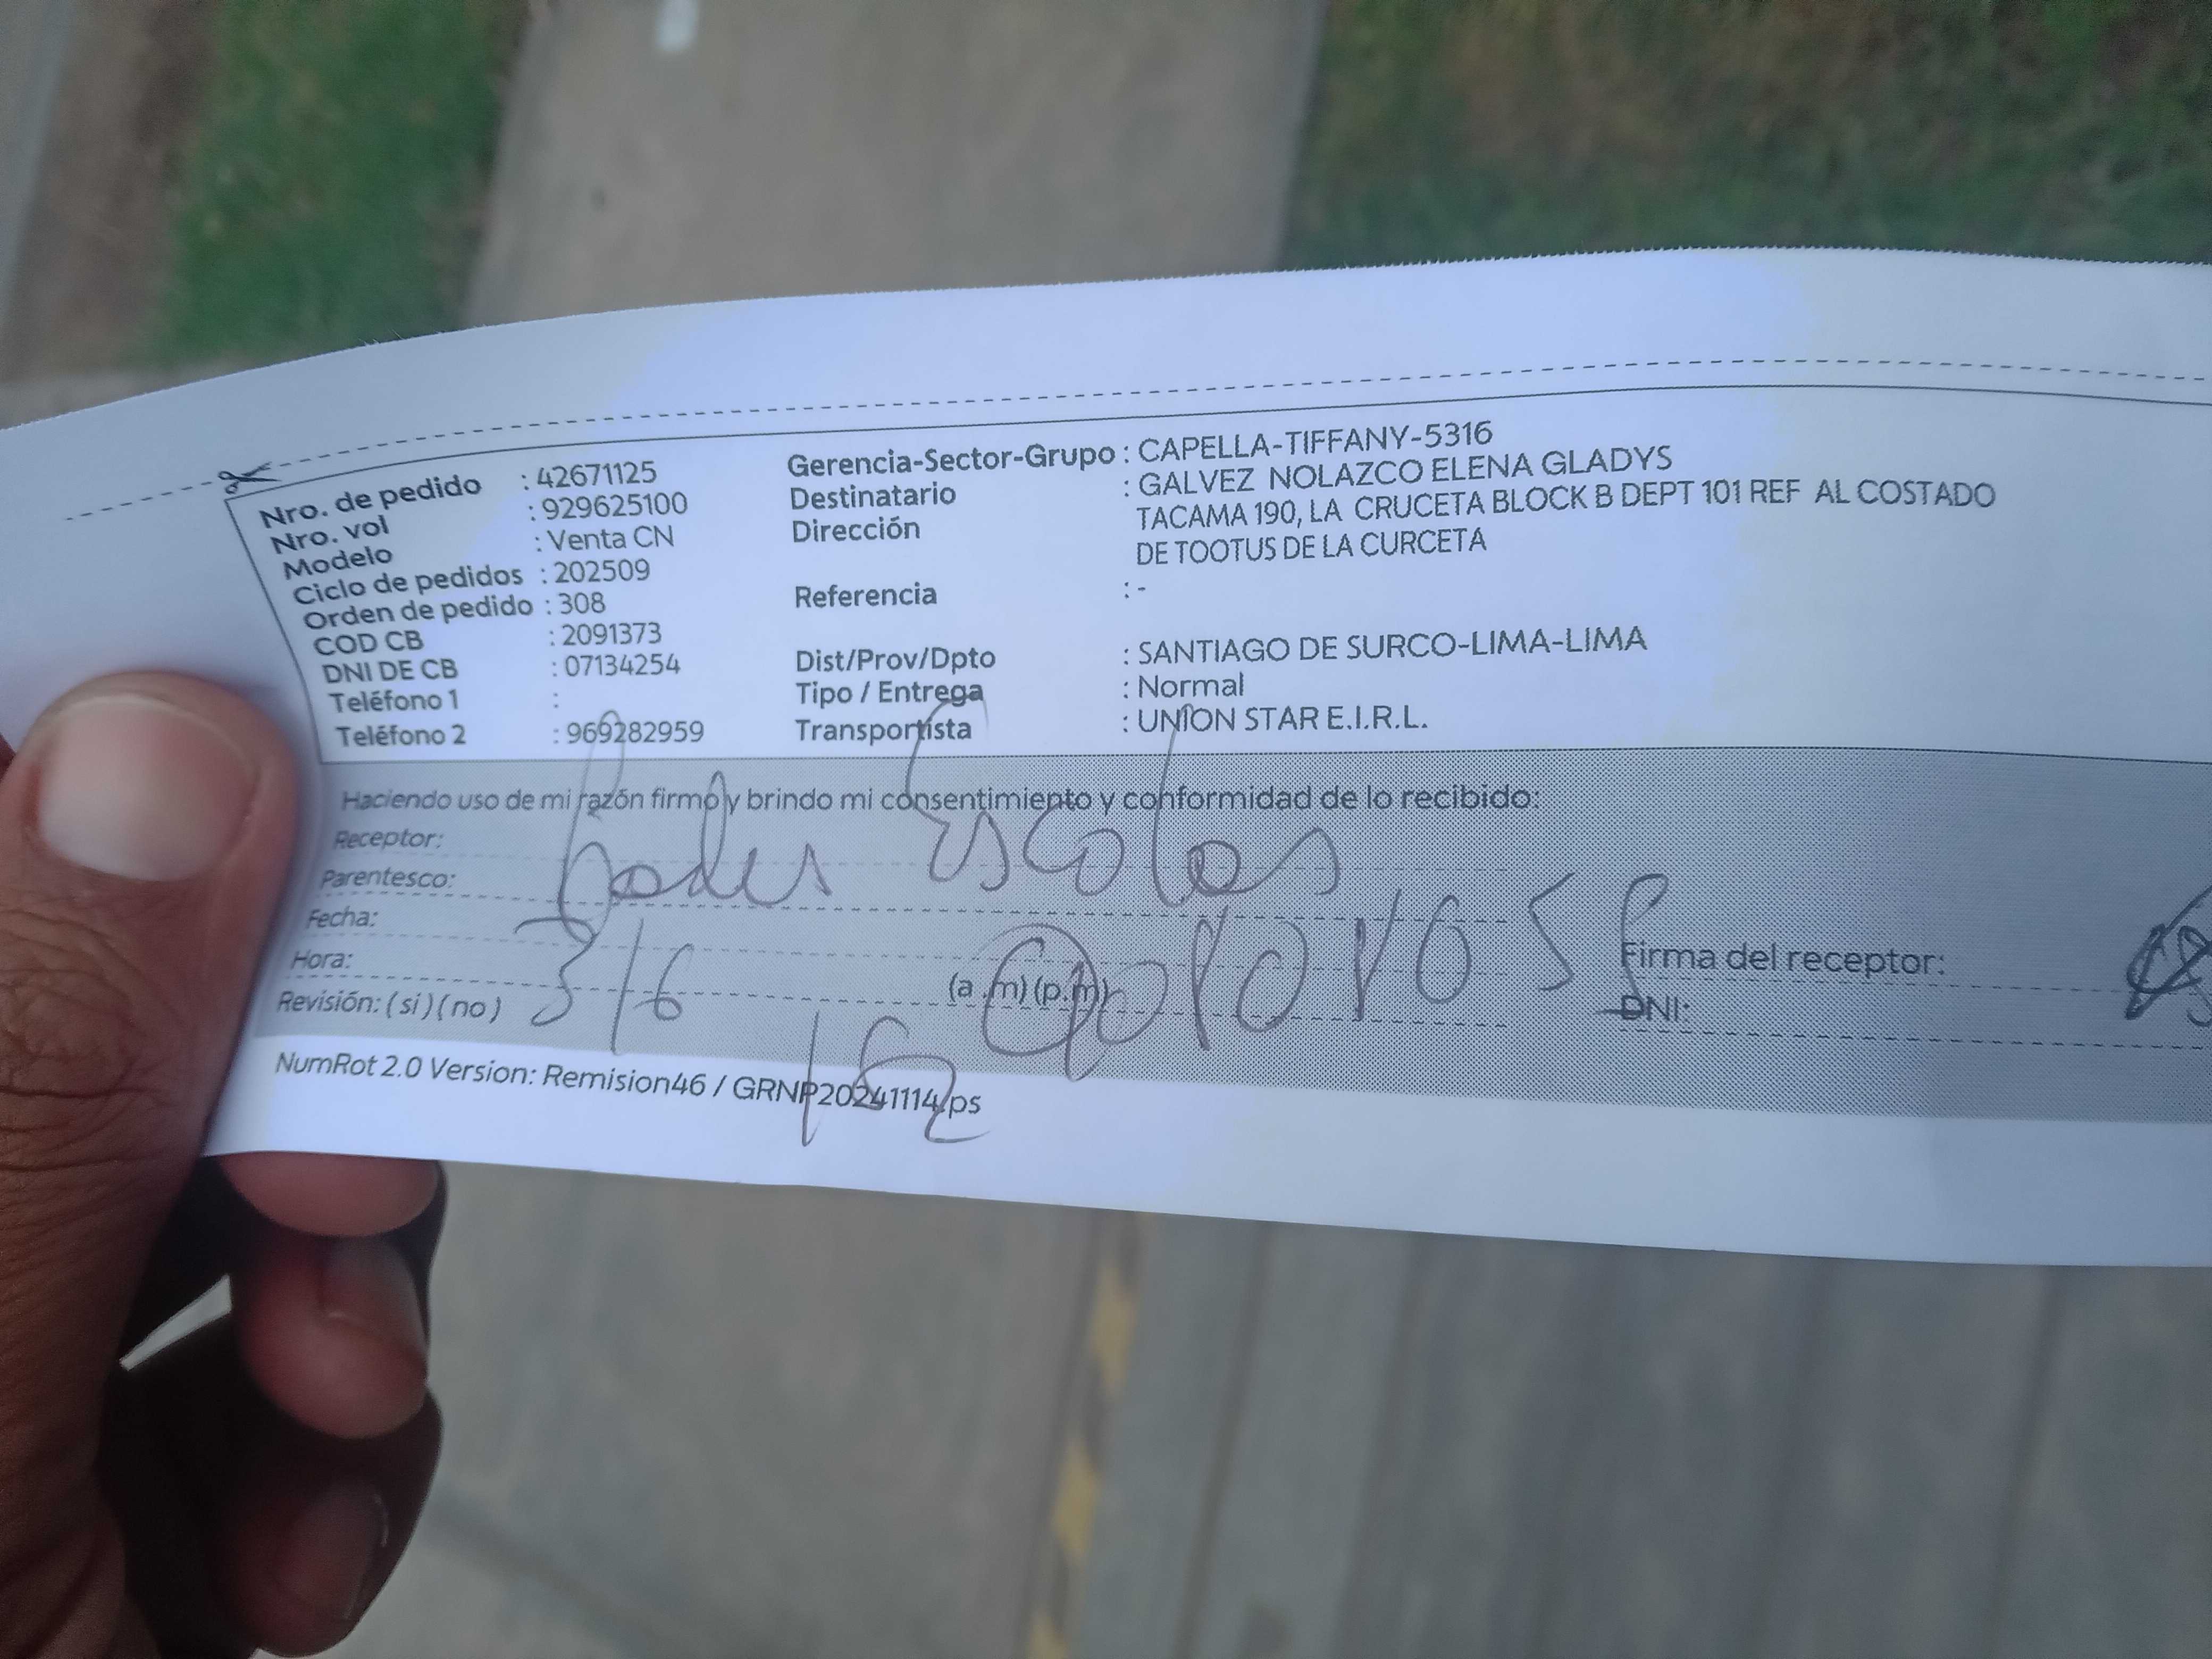 Nro. de pedido : 42671125
Nro. vol : 929625100
Modelo : Venta CN
Ciclo de pedidos : 202509
Orden de pedido : 308
COD CB : 2091373
DNI DE CB : 07134254
Teléfono 1 :
Teléfono 2 : 969282959
Gerencia-Sector-Grupo : CAPELLA-TIFFANY-5316
Destinatario : GALVEZ NOLAZCO ELENA GLADYS
Dirección : TACAMA 190, LA CRUCETA BLOCK B DEPT 101 REF AL COSTADO
DE TOOTUS DE LA CURCETA
Referencia : -
Dist/Prov/Dpto : SANTIAGO DE SURCO-LIMA-LIMA
Tipo / Entrega : Normal
Transportista : UNION STAR E.I.R.L.
Haciendo uso de mi razón firmo y brindo mi consentimiento y conformidad de lo recibido:
Receptor:
Parentesco:
Fecha:
Hora: (a.m) (p.m)
Revisión: (si) (no)
3/6
Firma del receptor:
DNI:
NumRot 2.0 Version: Remision46 / GRNP20241114.ps